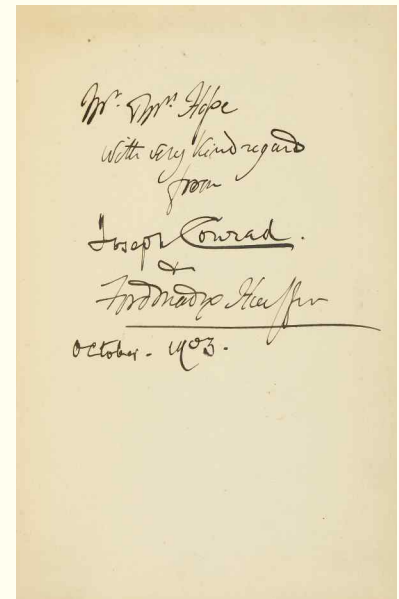 Mr. & Mrs. Hope
with very kind regards
from
Joseph Conrad.
&
Ford Madox Hueffer
October. 1903.